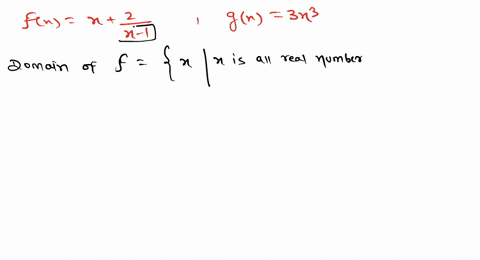 f(x) = x + 2/(x-1) , g(x) = 3x³
Domain of f = { x | x is all real number